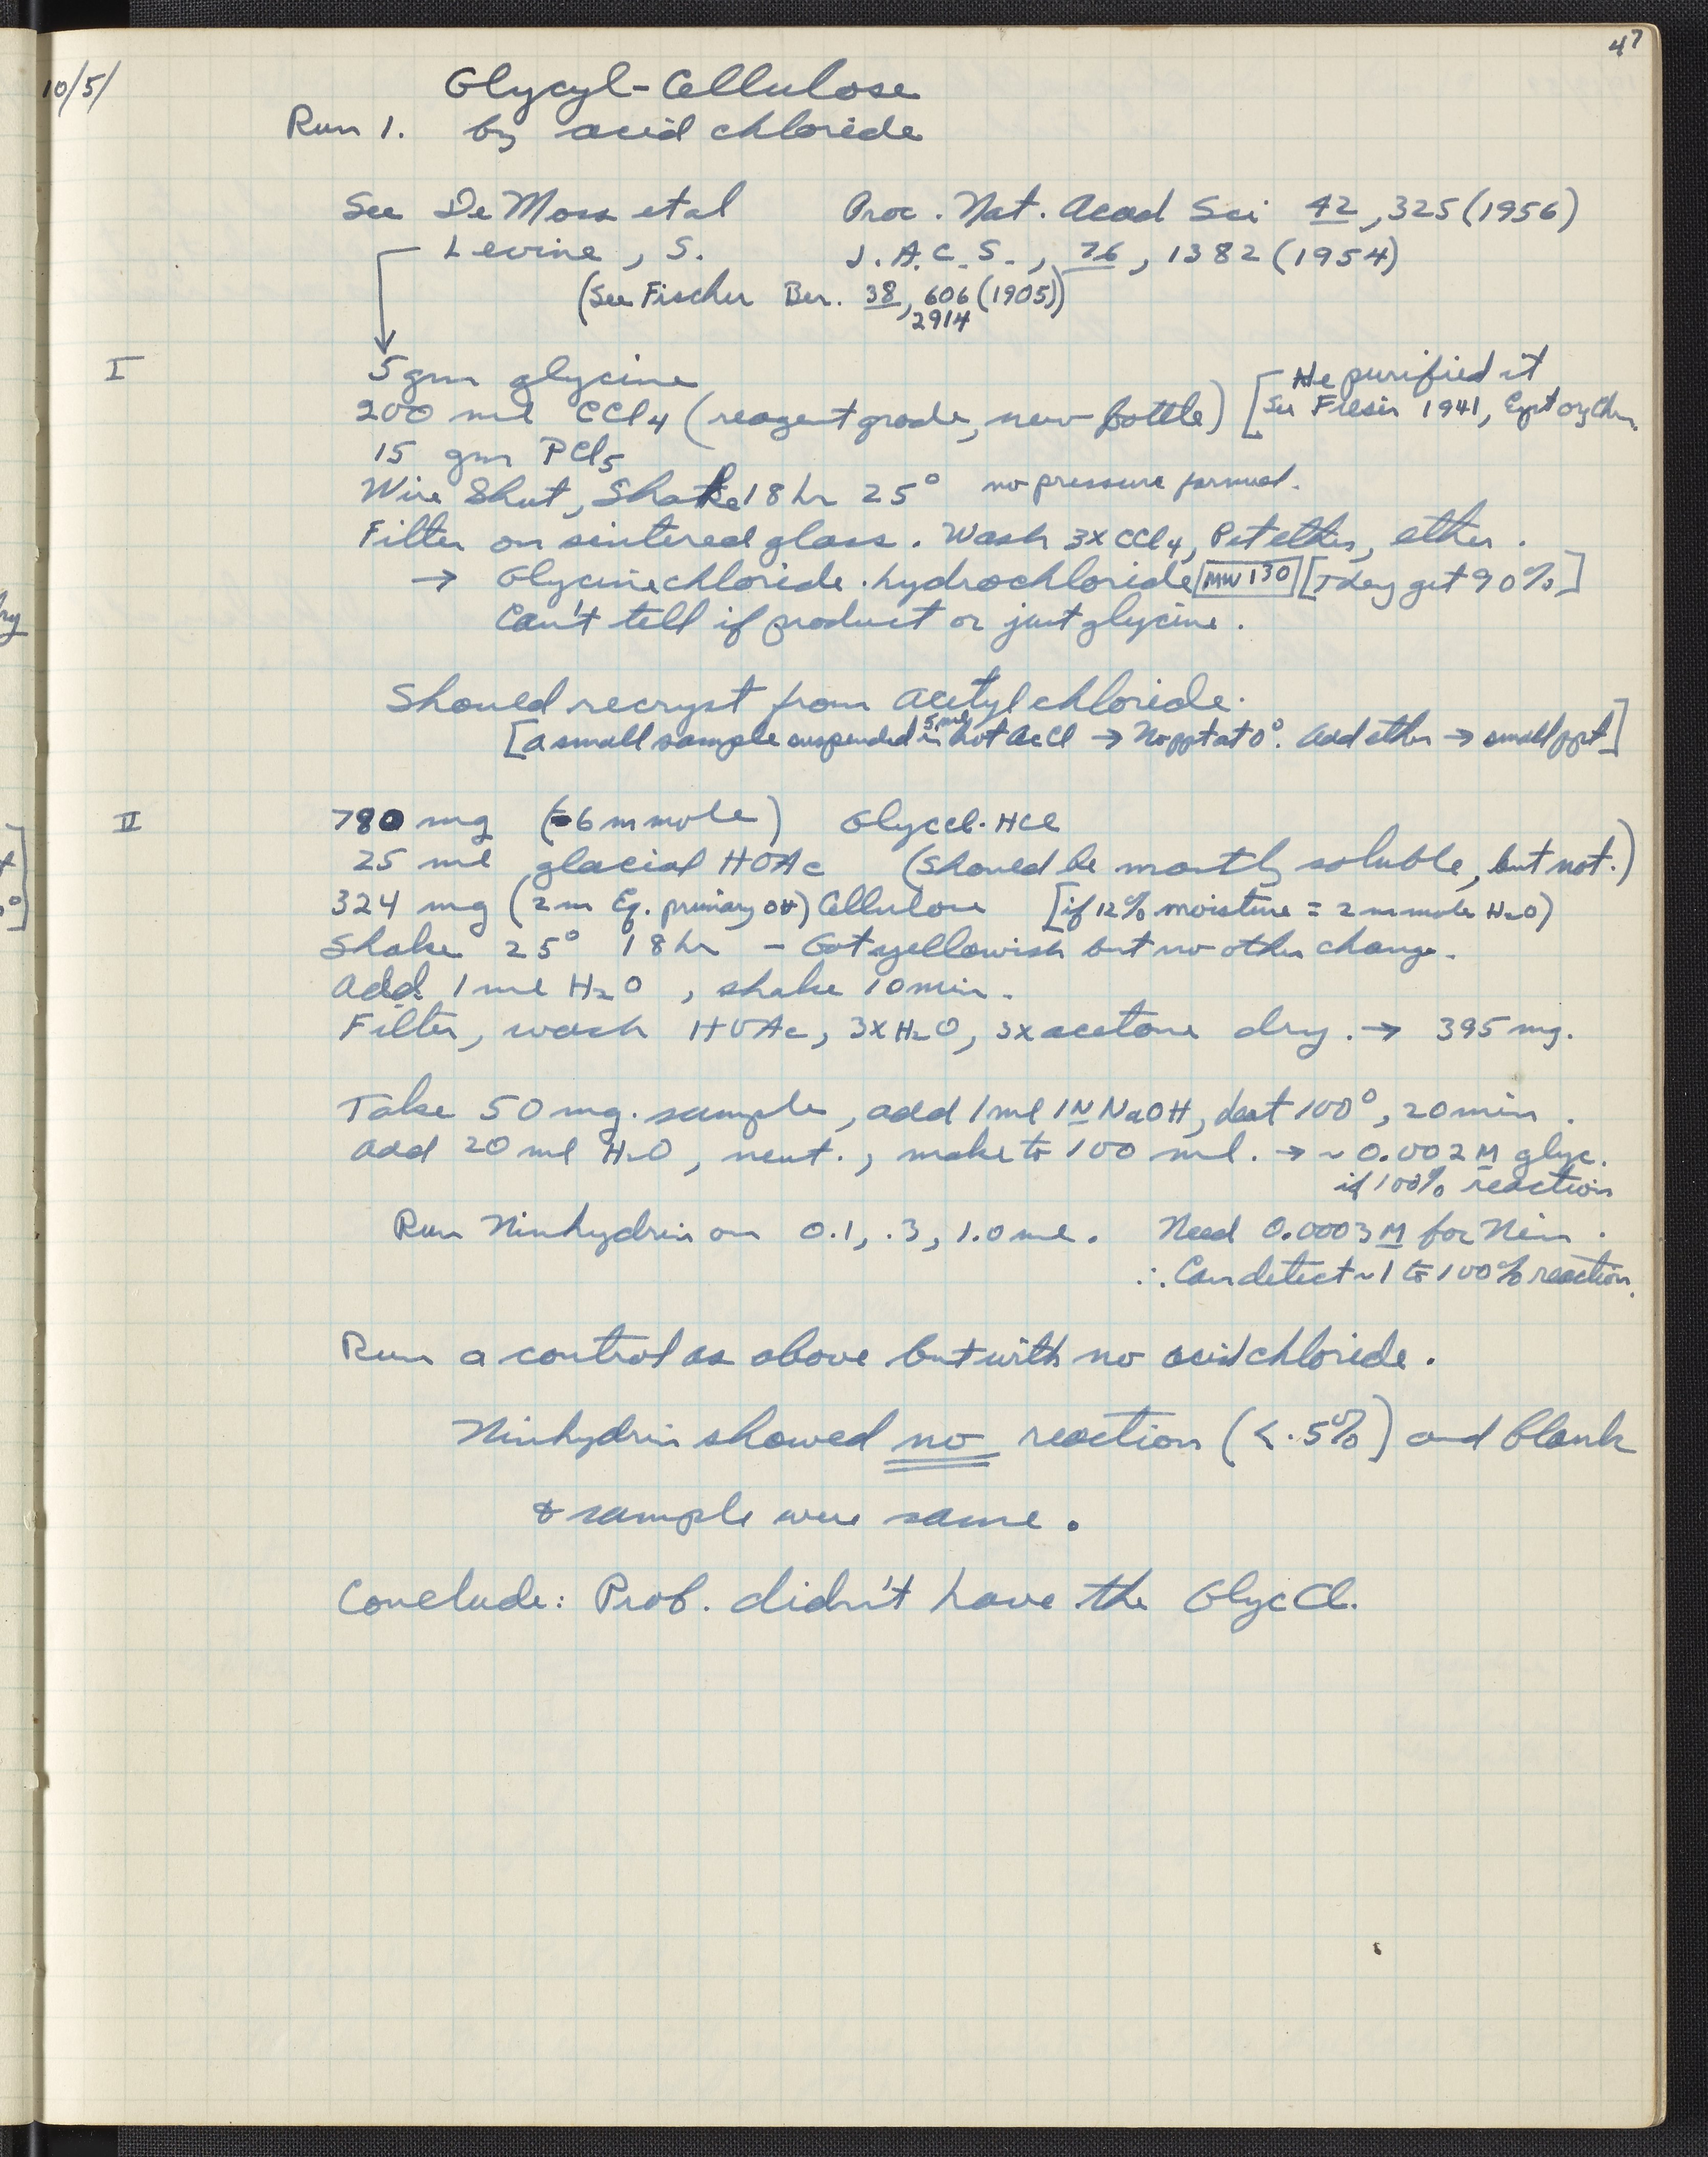 47
10/5/
Glycyl-Cellulose
Run 1. by acid chloride
See DeMoss et al Proc. Nat. Acad Sci 42, 325 (1956)
Levine, S. J.A.C.S., 76, 1382 (1954)
(See Fischer Ber. 38, 606 (1905))
2914
I
5 gm glycine
200 ml CCl4 (reagent grade, new bottle) [He purified it
See Fieser 1941, Expt org Chem.
15 gm PCl5
Wire Shut, Shake 18 hr 25° no pressure formed.
Filter on sintered glass. Wash 3x CCl4, Pet ether, ether.
→ Glycine chloride · hydrochloride MW 130 [They get 90%]
Can't tell if product or just glycine.
Should recryst from acetyl chloride.
[a small sample suspended in 5 ml hot AcCl → No ppt at 0°. Add ether → small ppt]
II
780 mg (6 m mole) Glyccl·HCl
25 ml glacial HOAc (Should be mostly soluble, but not.)
324 mg (2 m Eq. primary OH) Cellulose [if 12% moisture = 2 m mole H2O)
Shake 25° 18 hr - Got yellowish but no other change.
Add 1 ml H2O, shake 10 min.
Filter, wash HOAc, 3x H2O, 3x acetone dry. → 395 mg.
Take 50 mg. sample, add 1 ml 1N NaOH, heat 100°, 20 min.
Add 20 ml H2O, neut., make to 100 ml. → ~ 0.002 M glyc.
if 100% reaction
Run Ninhydrin on 0.1, .3, 1.0 ml. Need 0.0003 M for Nin.
∴ Can detect ~ 1 to 100% reaction.
Run a control as above but with no acid chloride.
Ninhydrin showed no reaction (<.5%) and blank
& sample were same.
Conclude: Prob. didn't have the GlycCl.